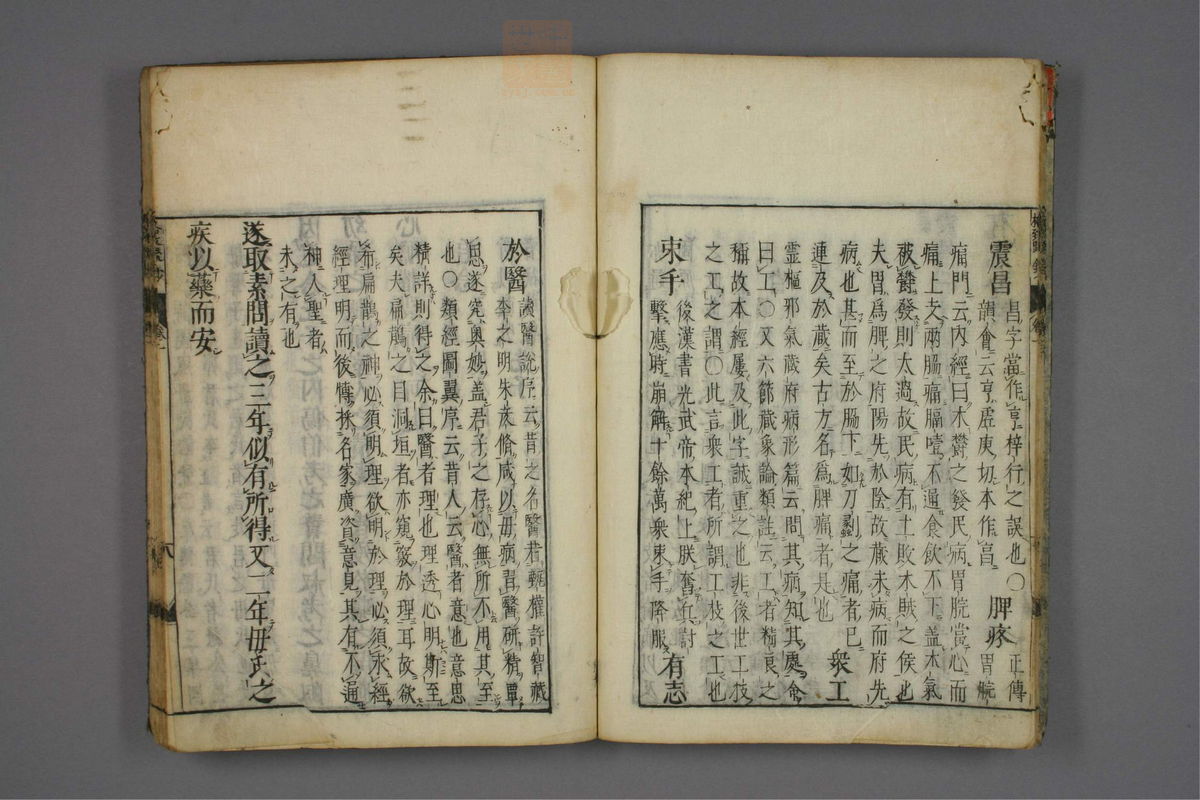 震昌 昌字當作亨梓行之誤也〇 脾疼 正傳
韻會云亨虛庚切本作亯 胃脘
痛門云內經曰木鬱之發民病胃脘當心而
痛上支兩脇痛膈噎不通食飲不下盖木氣
被鬱發則太過故民病有土敗木賊之候也
夫胃爲脾之府陽先於陰故藏未病而府先
病也甚而至於脇下如刀劙之痛者已
連及於藏矣古方名爲脾痛者是也 衆工
靈樞邪氣藏府病形篇云問其病知其處命
曰工〇又六節藏象論類註云工者精良之
稱故本經屢及此字誠重之也非後世工技
之工之謂〇此言衆工者所謂工技之工也
束手 後漢書光武帝本紀上朕奮兵討
擊應時崩解十餘萬衆束手降服 有志
於醫 讀醫說序云昔之名醫若甄權許智藏
李之明朱 脩咸以毋病習醫研精覃
思遂究奥妙盖君子之存心無所不用其至
也〇類經圖翼序云昔人云醫者意也意思
精詳則得之余曰醫者理也理透心明斯至
矣夫扁鵲之目洞垣者亦窺竅於理耳故欲
希扁鵲之神必須明理欲明於理必須求經
經理明而後慱採名家廣資意見其有不通
神入聖者
未之有也
遂取素問讀之三年似有所得又二年毋氏之
疾以藥而安